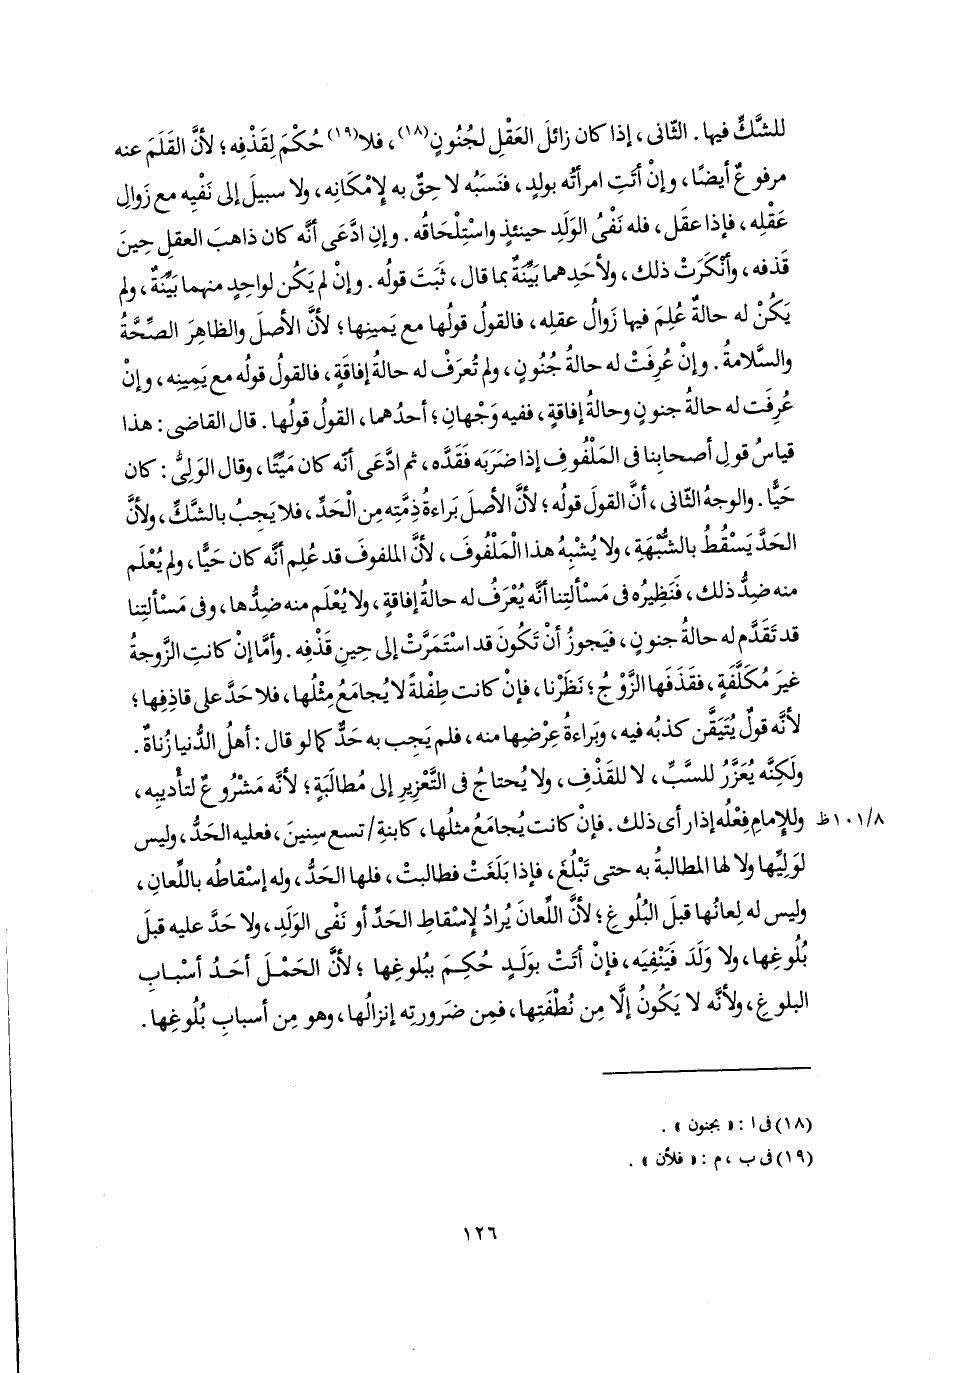 للشَّكِّ فيها . الثّانى ، إذا كان زائلَ العَقْلِ لجُنُونٍ(١٨) ، فلا(١٩) حُكْمَ لِقَذْفِه ؛ لأنَّ القَلَمَ عنه
مرفوعٌ أيضًا ، وإنْ أتَتِ امرأتُه بولدٍ ، فنَسَبُه لاحِقٌ به لإِمْكَانِه ، ولا سبيلَ إلى نَفْيِه مع زَوالِ
عَقْلِه ، فإذا عقَل ، فله نَفْىُ الوَلَدِ حينئذٍ واسْتِلْحَاقُه . وإنِ ادَّعَى أنَّه كان ذاهبَ العقلِ حِينَ
قَذفه ، وأنْكَرَتْ ذلك ، ولأحَدِهما بَيِّنَةٌ بما قال ، ثَبَتَ قولُه . وإنْ لم يَكُن لواحِدٍ منهما بَيِّنَةٌ ، ولم
يَكُنْ له حالةٌ عُلِمَ فيها زَوالُ عقلِه ، فالقولُ قولُها مع يَمينِها ؛ لأنَّ الأصلَ والظاهِرَ الصِّحَّةُ
والسَّلامةُ . وإنْ عُرِفَتْ له حالةُ جُنُونٍ ، ولم تُعرَفْ له حالةُ إفاقَةٍ ، فالقولُ قولُه مع يَمِينِه ، وإنْ
عُرِفَت له حالةُ جنونٍ وحالةُ إفاقةٍ ، ففيه وَجْهانِ ؛ أحدُهما ، القولُ قولُها . قال القاضى : هذا
قياسُ قولِ أصحابِنا فى المَلْفُوفِ إذا ضَرَبَه فَقَدَّه ، ثم ادَّعَى أنَّه كان مَيِّتًا ، وقال الوَلِىُّ : كان
حَيًّا . والوجهُ الثّانى ، أنَّ القولَ قولُه ؛ لأنَّ الأصلَ بَراءةُ ذِمَّتِه مِن الْحَدِّ ، فلا يَجِبُ بالشَّكِّ ، ولأنَّ
الحَدَّ يَسْقُطُ بالشُّبْهَةِ ، ولا يُشْبِهُ هذا الْمَلْفُوفَ ، لأنَّ الملفوفَ قد عُلِم أنَّه كان حَيًّا ، ولم يُعْلَم
منه ضِدُّ ذلك ، فَنَظِيرُه فى مَسْألتِنا أنَّه يُعْرَفُ له حالةُ إفاقةٍ ، ولا يُعْلَم منه ضِدُّها ، وفى مَسْألتِنا
قد تَقَدَّم له حالةُ جنونٍ ، فيَجوزُ أنْ تَكُونَ قد اسْتَمَرَّتْ إلى حِينِ قَذْفِه . وأمَّا إنْ كانتِ الزَّوجةُ
غيرَ مُكَلَّفَةٍ ، فقَذَفَها الزَّوْجُ ؛ نَظَرْنا ، فإنْ كانت طِفْلةً لا يُجامَعُ مِثْلُها ، فلا حَدَّ على قاذِفِها ؛
لأنَّه قولٌ يُتَيَقَّن كذبُه فيه ، وبَراءةُ عِرْضِها منه ، فلم يَجِب به حَدٌّ كما لو قال : أهلُ الدُّنيا زُناةٌ .
ولَكِنَّه يُعَزَّرُ للسَّبِّ ، لا للقَذْفِ ، ولا يُحتاجُ فى التَّعْزِيرِ إلى مُطالَبَةٍ ؛ لأنَّه مَشْرُوعٌ لتأْديبِه ،
٨/١٠١ظ وللإِمامِ فِعْلُه إذا رأى ذلك . فإنْ كانت يُجامَعُ مثلُها ، كابنةِ / تسع سِنِينَ ، فعليه الحَدُّ ، وليس
لوَلِيِّها ولا لها المطالبةُ به حتى تَبْلُغَ ، فإذا بَلَغَتْ فطالبتْ ، فلها الحَدُّ ، وله إسْقاطُه باللِّعانِ ،
وليس له لِعانُها قبلَ البُلُوغِ ؛ لأنَّ اللِّعانَ يُرادُ لإِسْقاطِ الحَدِّ أو نَفْى الوَلَدِ ، ولا حَدَّ عليه قبلَ
بُلُوغِها ، ولا وَلَدَ فَيَنْفِيَه ، فإنْ أتَتْ بوَلَدٍ حُكِمَ ببُلوغِها ؛ لأنَّ الحَمْلَ أحَدُ أسْبابِ
البلوغِ ، ولأنَّه لا يَكُونُ إلَّا مِن نُطْفَتِها ، فمِن ضَرورتِه إنزالُها ، وهو مِن أسبابِ بُلُوغِها .
(١٨) فى ا : « بجنون » .
(١٩) فى ب ، م : « فلأن » .
١٢٦